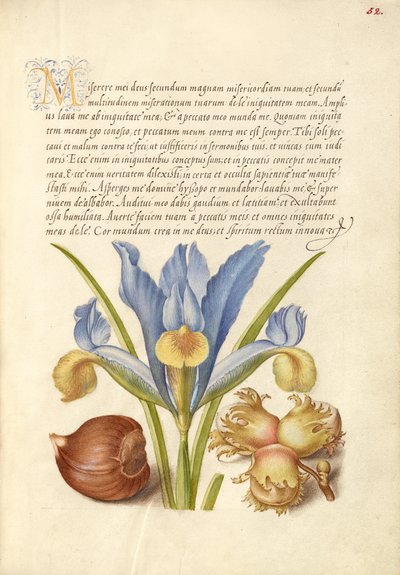 52.
Miserere mei deus secundum magnam misericordiam tuam: et secundũ
multitudinem miserationum tuarum dele iniquitatem meam. Ampli-
us laua me ab iniquitate mea, & a peccato meo munda me. Quoniam iniquita
tem meam ego conosco, et peccatum meum contra me est semper. Tibi soli pec-
caui et malum contra te feci, ut iustificeris in sermonibus tuis, et uincas cum iudi
caris. Ecce enim in iniquitatibus conceptus sum; et in peccatis concepit me mater
mea. Ecce enim veritatem dilexisti, in certa et occulta sapientiæ tuæ manife
stasti mihi. Asperges me domine hyßopo et mundabor: lauabis me & super
niuem dealbabor. Auditui meo dabis gaudium et lætitiam: et exultabunt
ossa humiliata. Auerte faciem tuam a peccatis meis: et omnes iniquitates
meas dele. Cor mundum crea in me deus; et spiritum rectum innoua &